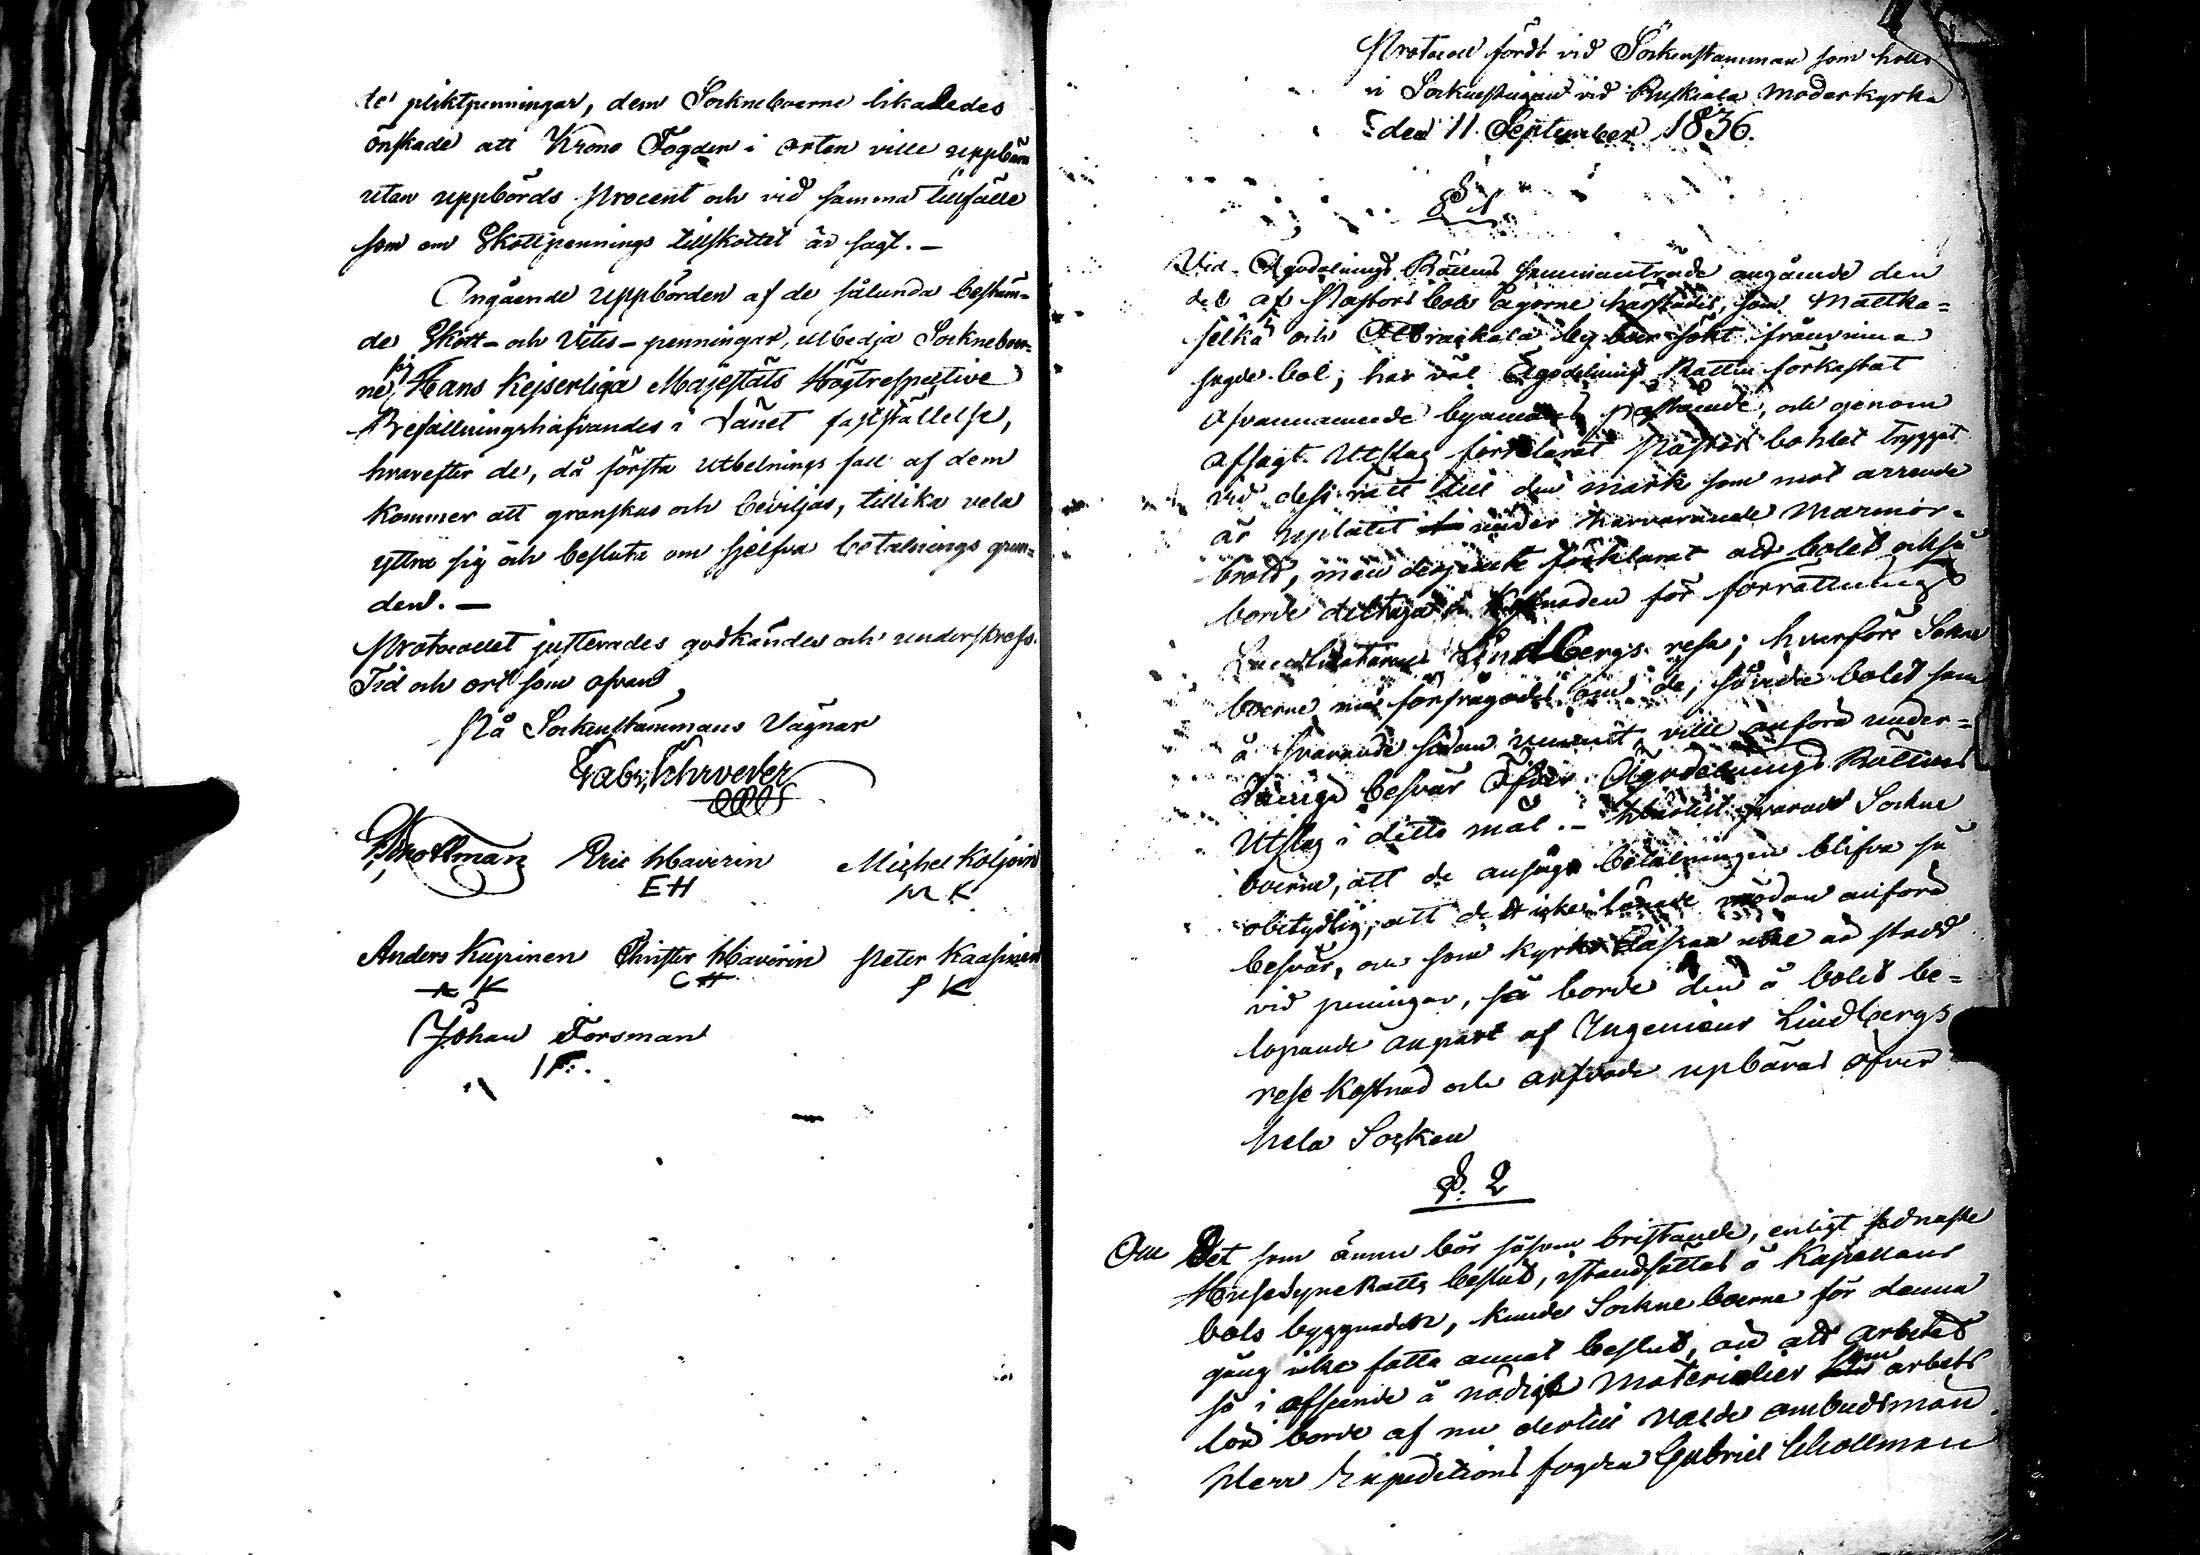 de pliktpenningar, dem Sockneboerne likaledes
önskade att Krono Fogden i orten ville uppbära
utan uppbörds Procent och vid samma tillfälle
som om Skottpennings tillskottet är sagt. —
Angående uppbörden af de sålunda bestäm-
de Skott- och Vites-penningar, utbedja Sockneboer-
ne sig Hans Kejserliga Majestäts Högtrespective
Befallningshafvandes i Länet fastställelse,
hvarefter de, då första utbetalnings fall af dem
kommer att granskas och beviljas, tillika vela
yttra sig och besluta om sjelfva betalnings grun-
den. —
Protocollet justerades godkändes och underskrefs.
Tid och ort som ofvan
På Sockenstämmans Vägnar
Gabr. Schroeder
Eric Haverin Michel Koljoin
EH MK
Anders Kupinen Christer Haverin Peter Kaasinen
AK CH PK
Johan Forsman
IF.
Protocoll fördt vid Sockenstämman som holls
i Sockenstugan vid Ruskiala Moderkyrka
den 11 September 1836.
§ 1
Vid Ägodelnings Rättens sammanträde angående den
del af Pastors bols ägorne härstädes, som Matka-
selkä och by boer sökt frånvinna
sagde bol; har väl Ägodelnings Rätten förkastat
ofvannämnde byamäns påstående, och genom
afsagt Utslag förklarat Pastors bohlet tryggat
vid dess rätt till den mark som mot arrende
är uplåtit under harvarande Marmor-
brott, men derjemte förklarat att bolet också
borde deltaga i kostnaden för förrättnings
Lindbergs resa; hvarföre Sokne
boerne nu förfrågades om de, så vida bolet som
å svarande sidan vunnit, ville anföra under-
dåniga besvär öfver Ägodelnings Rättens
Utslag i detta mål. — Härtill svarade Sockne
boerne, att de ansågo betalningen blifva så
obetydlig, att det icke lönade mödan anföra
besvär, och som kyrko Cassan icke är stadd
vid penningar, så borde den å bolet be-
löpande anpart af Ingenieur Lindbergs
rese kostnad och arfvode upbäras öfver
hela Socken
§. 2
Om Det som ännu bör såsom bristande, enligt sednaste
HusesyneRätts beslut, iståndsättas å Kapellans
bols byggnader, kunde Sockneboerne för denna
gång icke fatta annat beslut, än att arbetet
så i afseende å nödiga Materialier som arbets
lön borde af nu dertill valde ombudsman
Herr Expeditions fogden Gabriel